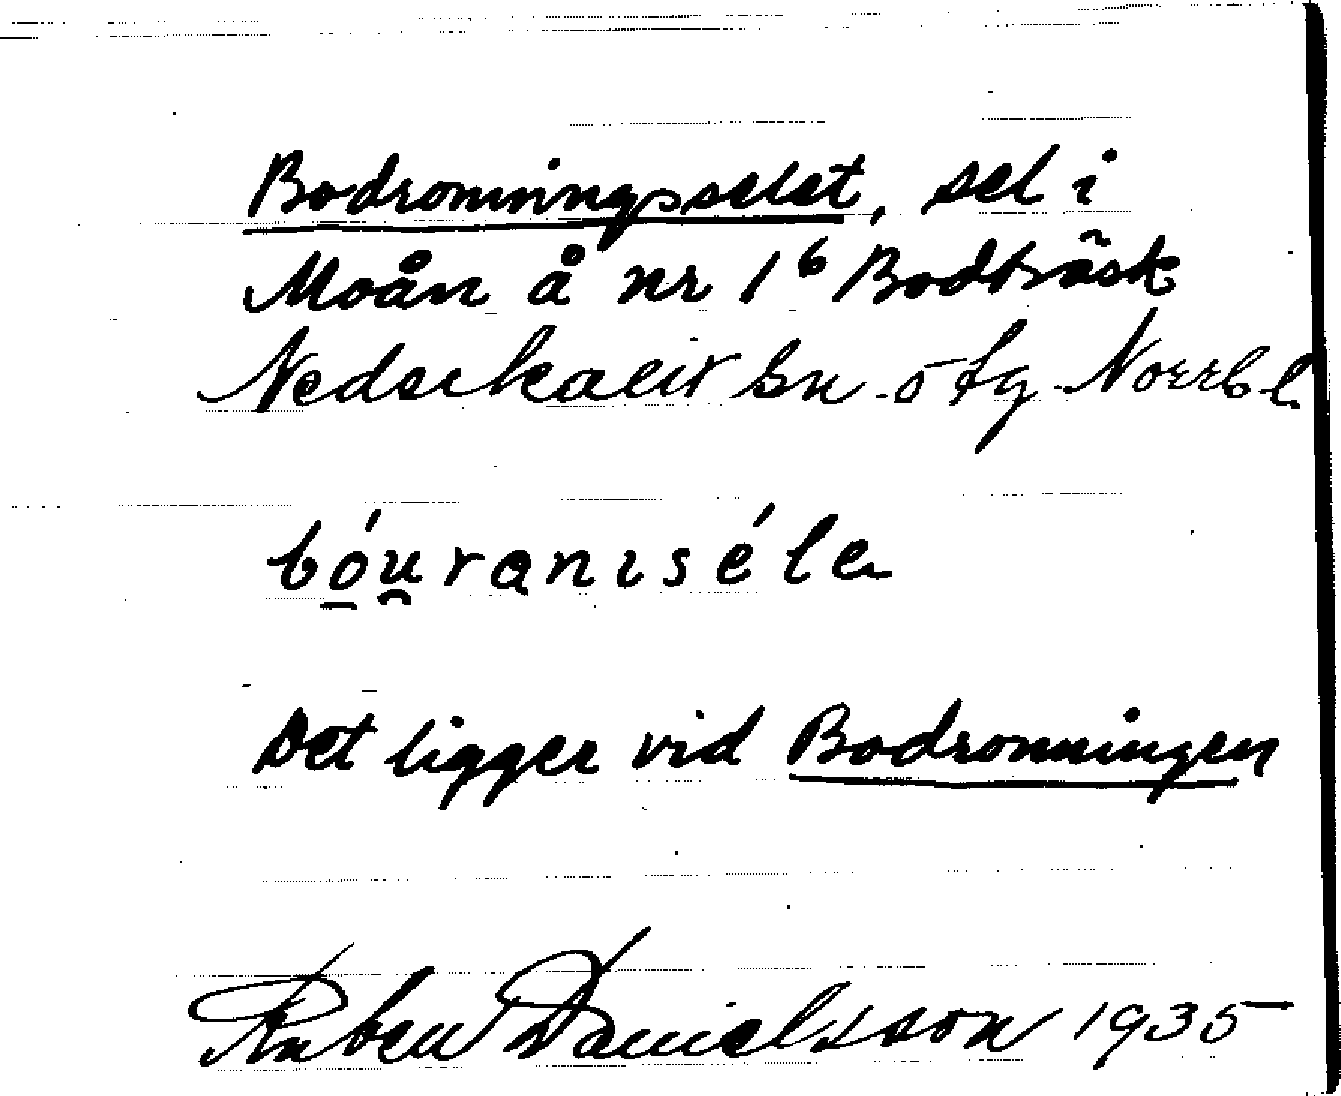 Bodronningsselet, sel i
Moån å nr 1⁶ Bodträsk
Nederkalix sn o tg Norrb l
bóu̯ranıséle
Det ligger vid Bodronningen
Ruben Danielsson 1935